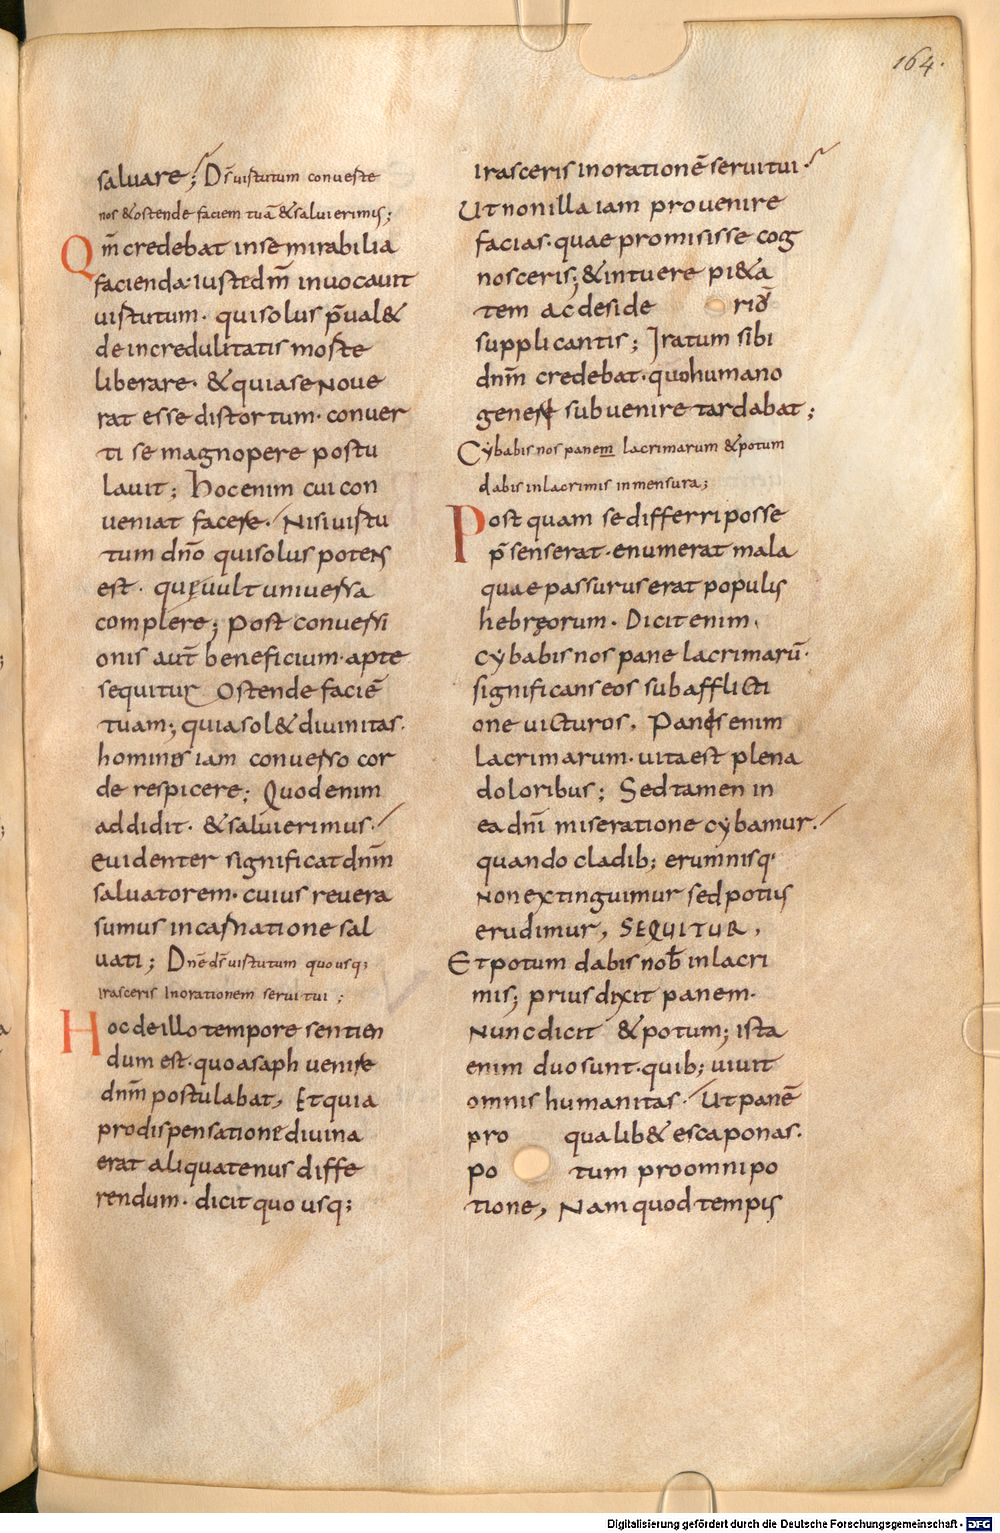 164.
saluare; D̄s uirtutum conuerte
nos & ostende faciem tuā & salui erimus;
Qm̄ credebat in se mirabilia
facienda· iuste dm̄ inuocauit
uirtutum· qui solus p̄ual&
de incredulitatis morte
liberare· & quia se noue
rat esse distortum· conuer
ti se magnopere postu
lauit; Hoc enim cui con
ueniat facere· Nisi uirtu
tum dn̄o qui solus potens
est· quę uult uniuersa
complere; Post conuersi
onis aut̄ beneficium· apte
sequitur Ostende faciē
tuam; quia sol& diuinitas·
hominis iam conuerso cor
de respicere; Quod enim
addidit· & salui erimus·
euidenter significat dnm̄
saluatorem· cuius reuera
sumus incarnatione sal
uati; Dnē d̄s uirtutum quo usq;
irasceris In orationem serui tui;
Hoc de illo tempore sentien
dum est· quo asaph uenire
dnm̄ postulabat, Et quia
pro dispensatione diuina
erat aliquatenus diffe
rendum· dicit quo usq;
irasceris in orationē serui tui·
Ut non illa iam prouenire
facias· quae promisisse cog
nosceris; & intuere pi&a
tem ac deside riō
supplicantis; Iratum sibi
dnm̄ credebat· quo humano
generi subuenire tardabat;
Cybabis nos panem lacrimarum & potum
dabis in lacrimis in mensura;
Post quam se differri posse
p̄senserat· enumerat mala
quae passurus erat populus
hebreorum· Dicit enim,
cybabis nos pane lacrimarū·
significans eos sub afflicti
one uicturos, Panis enim
lacrimarum· uita est plena
doloribus; Sed tamen in
ea dnī miseratione cybamur·
quando cladib; erumnisq·
non extinguimur sed potius
erudimur, SEQUITUR,
Et potum dabis nob̄ in lacri
mis; prius dixit panem·
Nunc dicit & potum; ista
enim duo sunt· quib; uiuit
omnis humanitas· Ut panē
pro qualib& esca ponas·
po tum pro omni po
tione, Nam quod tempus
Digitalisierung gefördert durch die Deutsche Forschungsgemeinschaft - DFG